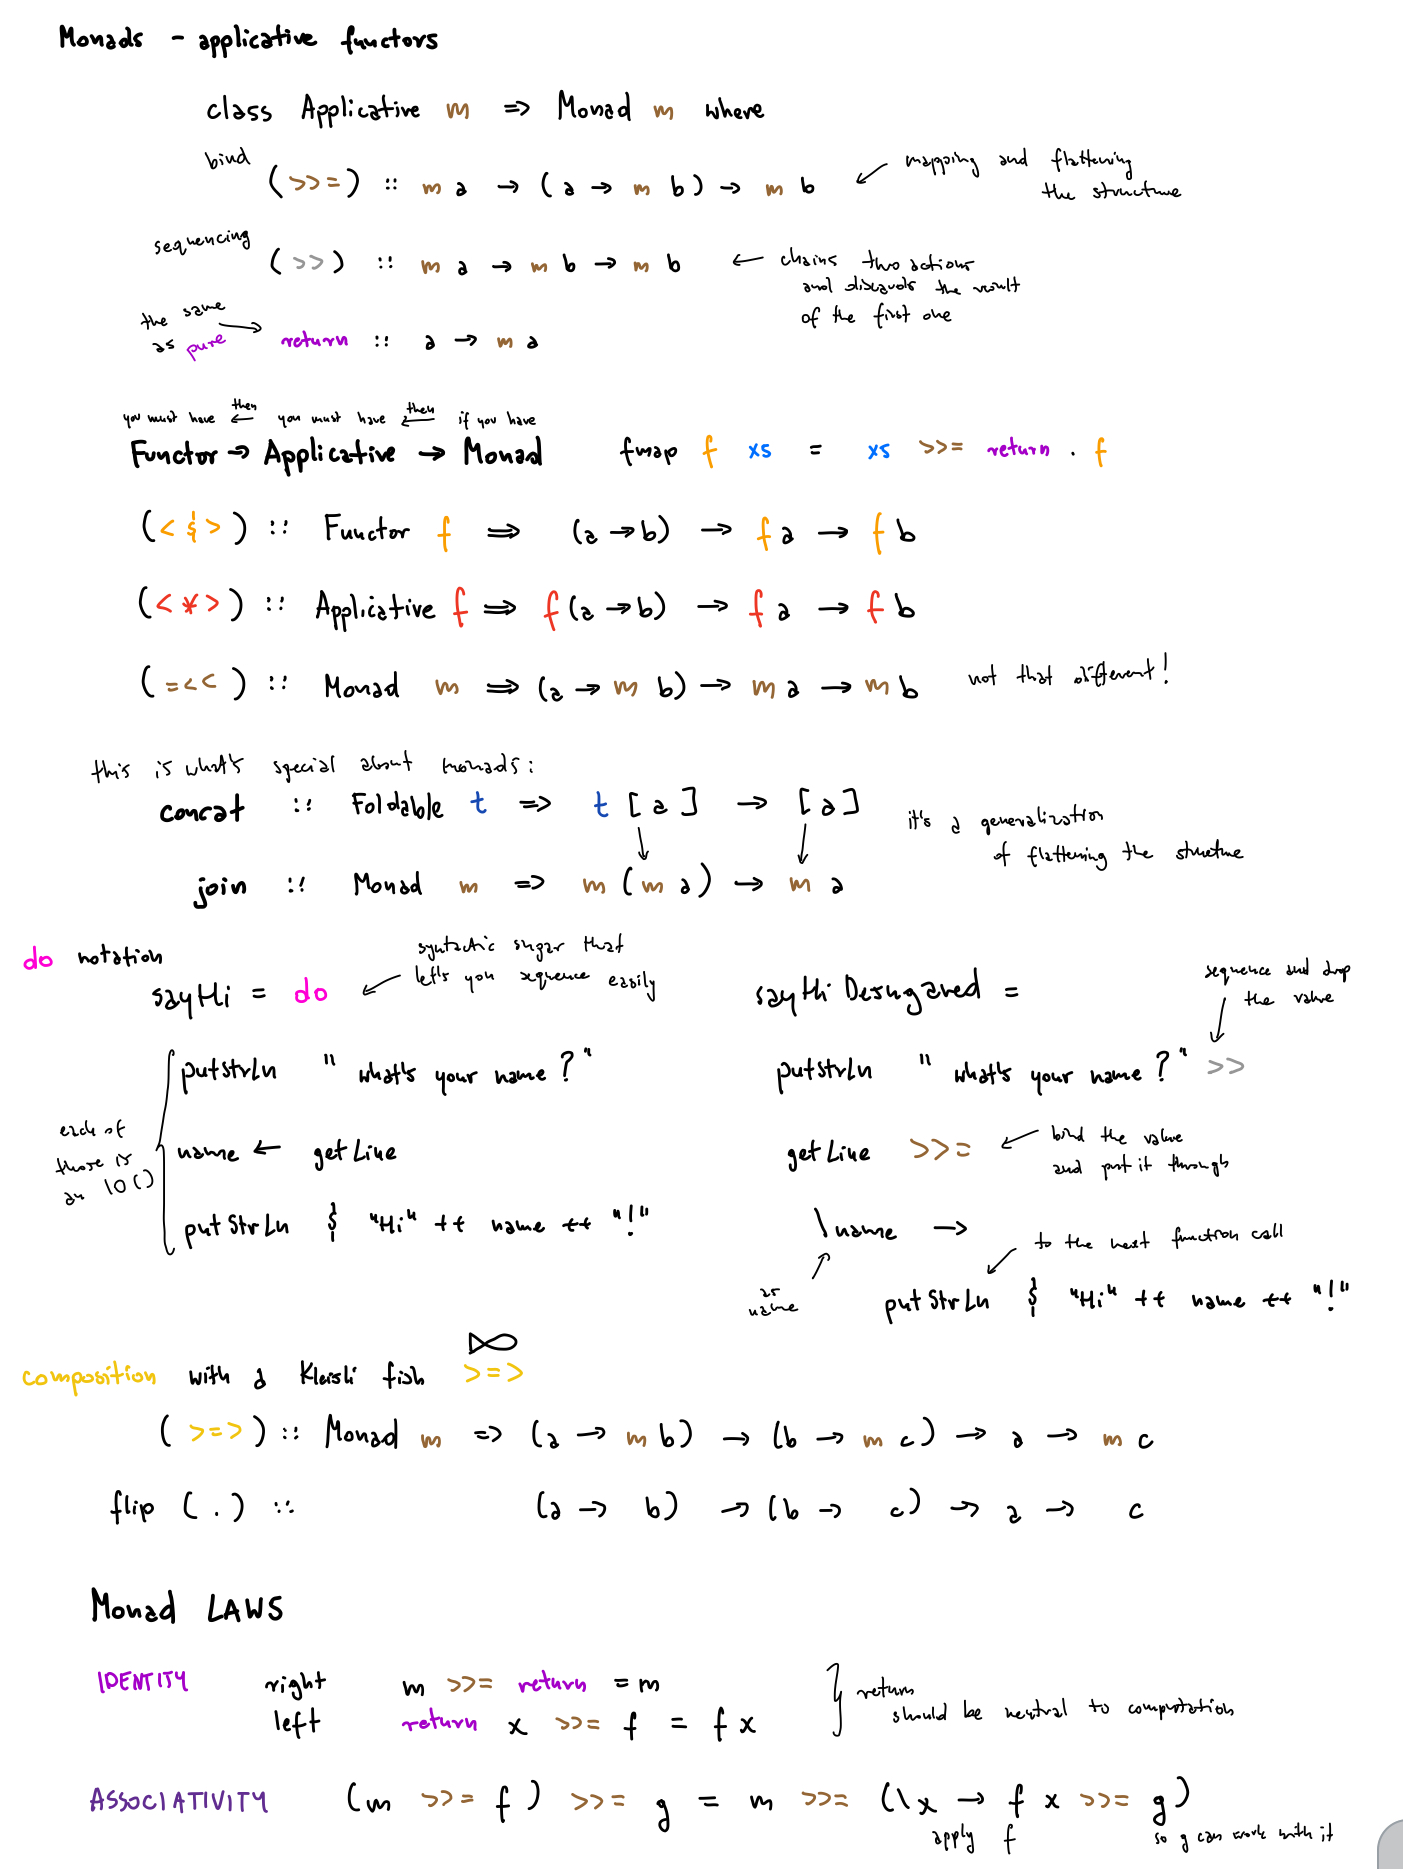 Monads - applicative functors
class Applicative m => Monad m where
bind
(>>=) :: m a → (a → m b) → m b
← mapping and flattening
the structure
sequencing
(>>) :: m a → m b → m b
← chains two actions
and discards the result
of the first one
the same
as pure →
return :: a → m a
you must have ←then you must have ←then if you have
Functor → Applicative → Monad
fmap f xs = xs >>= return . f
(<$>) :: Functor f => (a → b) → f a → f b
(<*>) :: Applicative f => f (a → b) → f a → f b
(=<<) :: Monad m => (a → m b) → m a → m b
not that different!
this is what's special about monads:
concat :: Foldable t => t [a] → [a]
join :: Monad m => m (m a) → m a
it's a generalization
of flattening the structure
do notation
sayHi = do
← syntactic sugar that
let's you sequence easily
putStrLn "what's your name?"
name ← getLine
putStrLn $ "Hi" ++ name ++ "!"
each of
those is
an IO()
sayHiDesugared =
sequence and drop
the value
putStrLn "what's your name?" >>
getLine >>=
← bind the value
and put it through
\name →
as
name
to the next function call
putStrLn $ "Hi" ++ name ++ "!"
composition with a Kleisli fish >=>
(>=>) :: Monad m => (a → m b) → (b → m c) → a → m c
flip (.) :: (a → b) → (b → c) → a → c
Monad LAWS
IDENTITY
right m >>= return = m
left return x >>= f = f x
return
should be neutral to computation
ASSOCIATIVITY (m >>= f) >>= g = m >>= (\x → f x >>= g)
apply f
so g can work with it